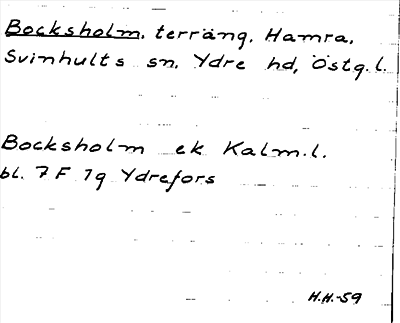 Bocksholm. terräng. Hamra.
Svinhults sn. Ydre hd, Östg. l.
Bocksholm ek Kalm. l.
bl. 7 F 1g Ydrefors
H.H.-59